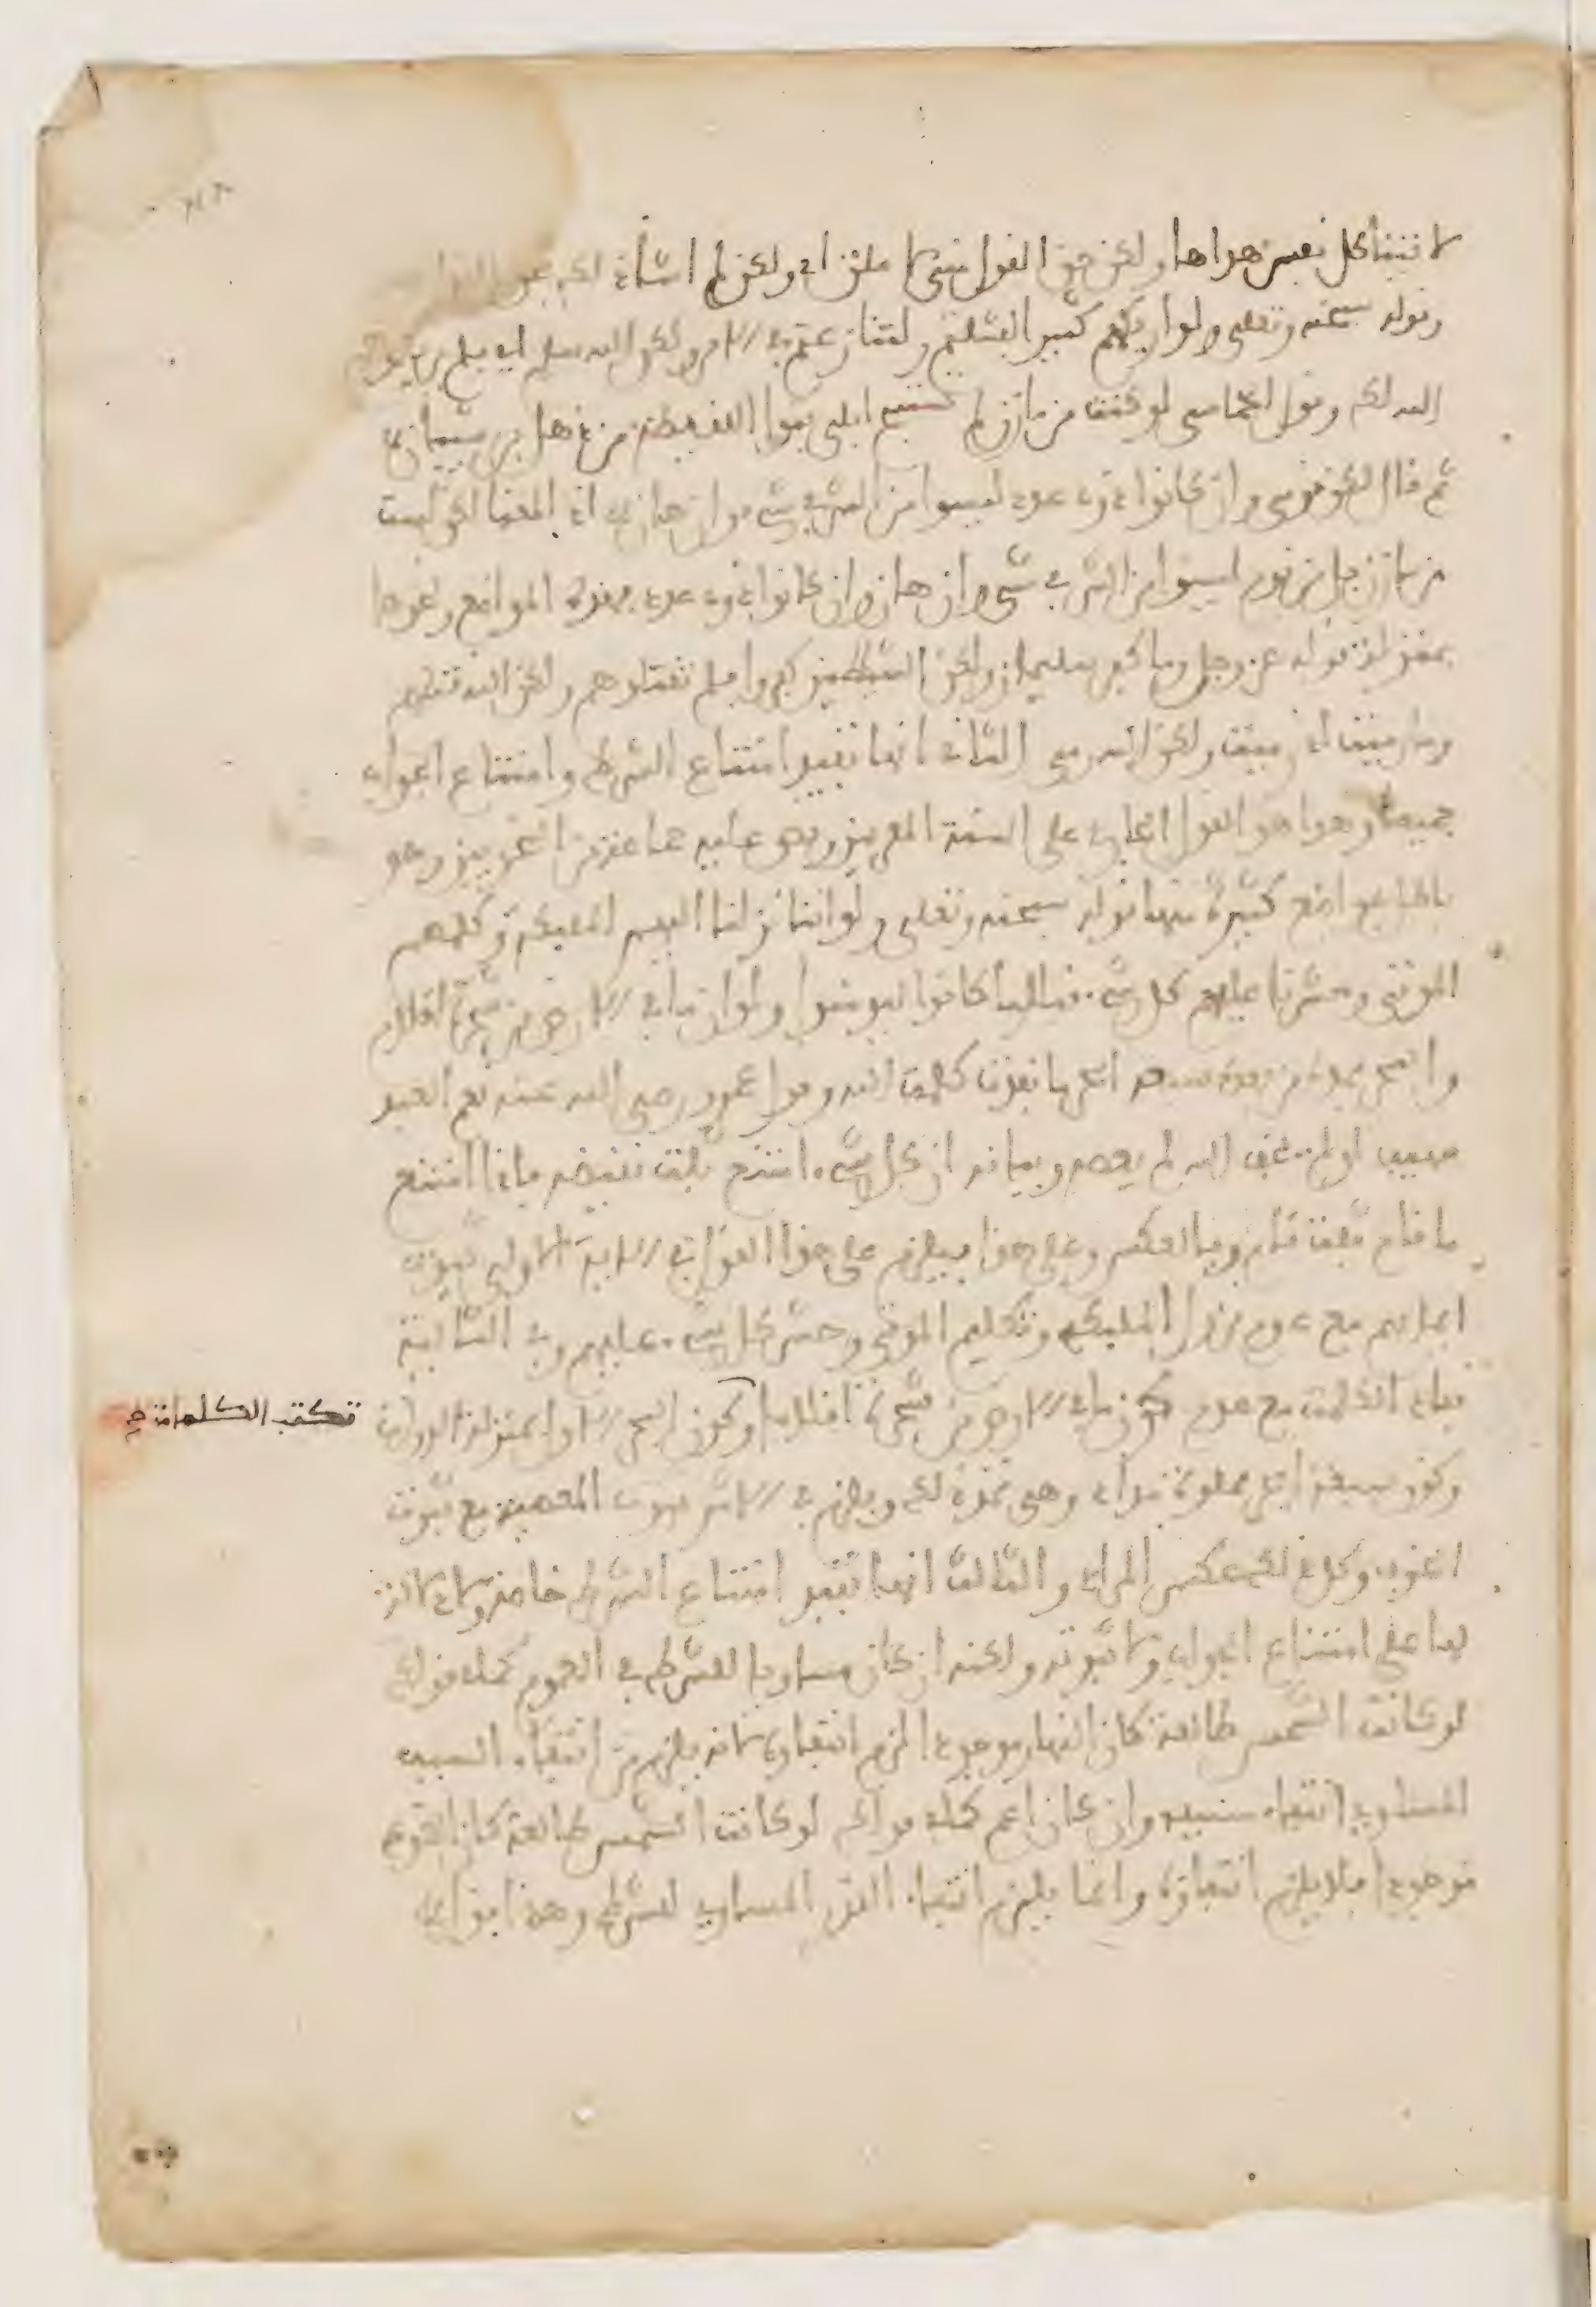 لاتينا كل نفس هداها ولكن حق القول مني لاملان اي ولكن لم اشا ذلك فحق القول
وقوله سبحنه وتعلى ولو اريكهم كثيرا لفشلتم ولتنازعتم في الامر ولكن الله سلم اي فلم يريكموهم
الله لك وقول الحماسي لو كنت من مازن لم تستبح ابلي بنوا اللقيطة من ذهل بن شيبانا
ثم قال لكن قومي وان كانوا ذوي عدد ليسوا من الشر في شيء وان هانا اذ المعنا لكن لست
من مازن بل من قوم ليسوا من الشر في شيء وان هان وان كانوا ذوي عدد فهذه المواضع ونحوها
بمنزلة قوله عز وجل وما كفر سليمان ولكن الشيطين كفروا فلم تقتلوهم ولكن الله قتلهم
وما رميت اذ رميت ولكن الله رمى الثاني انها تفيد امتناع الشرط وامتناع الجواب
جميعا وهذا هو القول الجاري على السنة المعربين ونص عليه جماعة من النحويين وهو
باطل بمواضع كثيرة منها قوله سبحنه وتعلى ولو اننا نزلنا اليهم المليكة وكلمهم
الموتى وحشرنا عليهم كل شيء قبلا ما كانوا ليومنوا ولو ان ما في الارض من شجرة اقلام
والبحر يمده من بعده سبعة ابحر ما نفدت كلمت الله وقول عمر رضي الله عنه نعم العبد
صهيب لو لم يخف الله لم يعصه وبيانه ان كل شيء امتنع ثبت نقيضه فاذا امتنع
ما قام ثبت قام وبالعكس وعلى هذا فيلزم على هذا القول في الاية الاولى ثبوت
ايمانهم مع عدم نزول المليكة وتكليم الموتى وحشر كل شيء عليهم وفي الثانية
نفاد الكلمت مع عدم كون ما في الارض من شجرة اقلاما وكون البحر الاول بمنزلة الدوات
تكتب الكلمات صح
وكون سبعة ابحر مملوة مدادا وهي تمد ذلك ويلزم في الاثر ثبوت المعصية مع ثبوت
الخوف وكل ذلك عكس المراد والثالث انها تفيد امتناع الشرط خاصة ولا دلالة
لها على امتناع الجواب ولا ثبوته ولكنه ان كان مساويا للشرط في العموم كما في قولك
لو كانت الشمس طالعة كان النهار موجودا لزم انتفاوه لانه يلزم من انتفاء السبب
المساوي انتفاء مسببه وان كان اعم كما في قولك لو كانت الشمس طالعة كان الضوء
موجودا فلا يلزم انتفاوه وانما يلزم انتفاء القدر المساوي للشرط وهذا قول